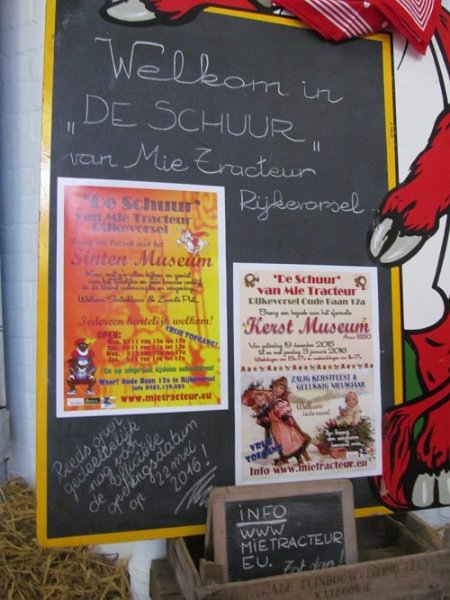 Welkom in
„DE SCHUUR"
van Mie Tracteur
Rijkevorsel
"De Schuur"
van Mie Tracteur
Rijkevorsel
Breng een bezoek aan het
Sinten Museum
Welkom Sinterklaas & Zwarte Piet.
Iedereen hartelijk welkom!
OPEN:
VRIJE TOEGANG!
En op afspraak tijdens schooluren!
Waar? Oude Baan 12a te Rijkevorsel
www.mietracteur.eu
"De Schuur"
van Mie Tracteur
Rijkevorsel Oude Baan 12a
Breng een bezoek aan het sfeervolle
Kerst Museum
Anno 1930
Van zaterdag 19 december 2015
tot en met zondag 3 januari 2016
ZALIG KERSTFEEST &
GELUKKIG NIEUWJAAR
Welkom
iedereen!
VRIJE
TOEGANG
Info www.mietracteur.eu
Reeds open
gedeeltelijk
nog voor
de officiële
openingsdatum
op 22 mei
2016!
INFO
WWW
MIETRACTEUR
EU.
Tot dan!